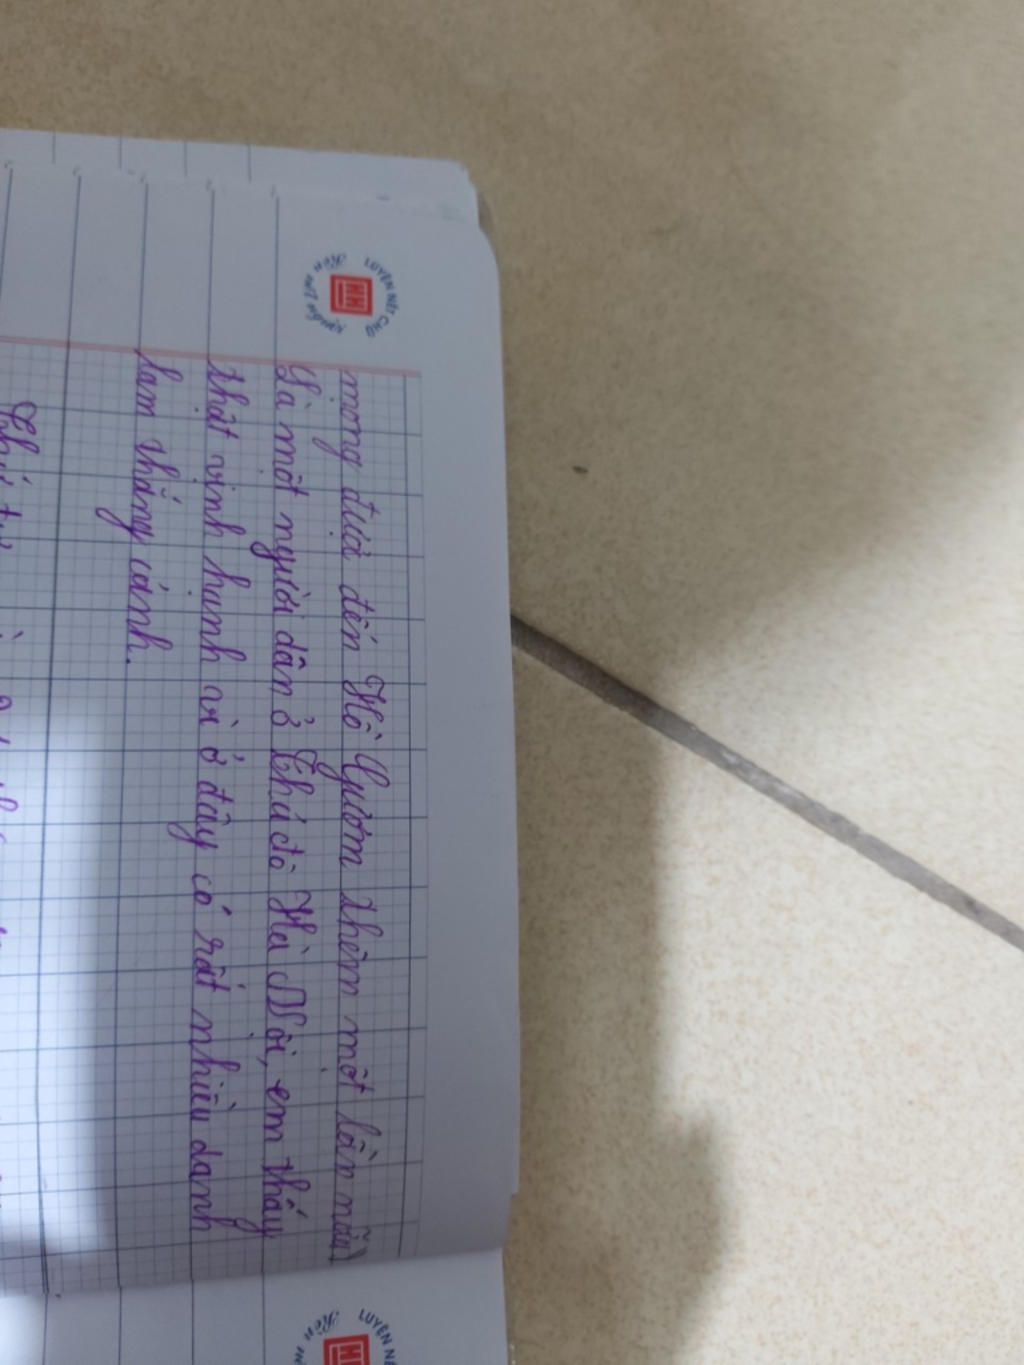 LUYỆN NÉT CHỮ
Rèn nết người
HH
mong được đến Hồ Gươm thêm một lần nữa
Là một người dân ở Thủ đô Hà Nội, em thấy
thật vinh hạnh vì ở đây có rất nhiều danh
lam thắng cảnh.
LUYỆN NÉ
Rèn